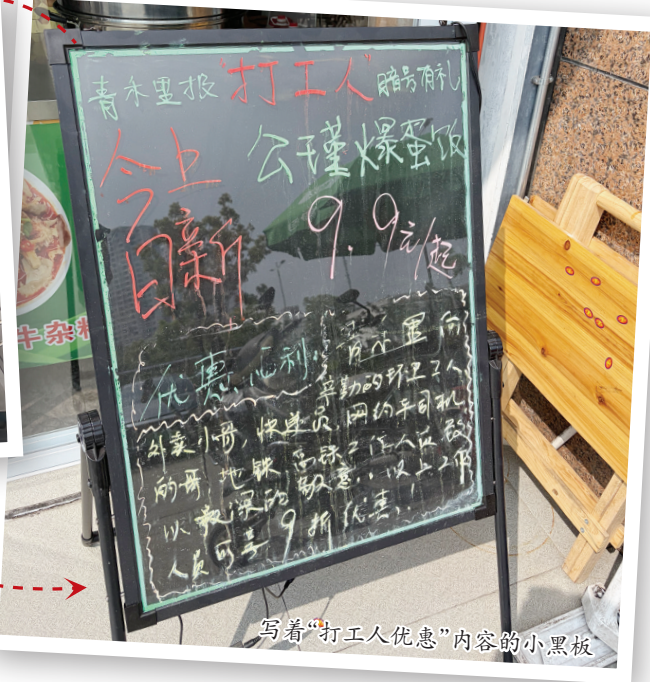 青禾里报"打工人"暗号有礼
今日
上新
公瑾爆蛋饭
9.9元/起
优惠福利：
青禾里向
辛勤的环卫工人
外卖小哥，快递员 网约车司机
的哥，地铁 高铁工作人员 致
以最深的敬意，以上工作
人员可享9折优惠！
牛杂粉
写着“打工人优惠”内容的小黑板